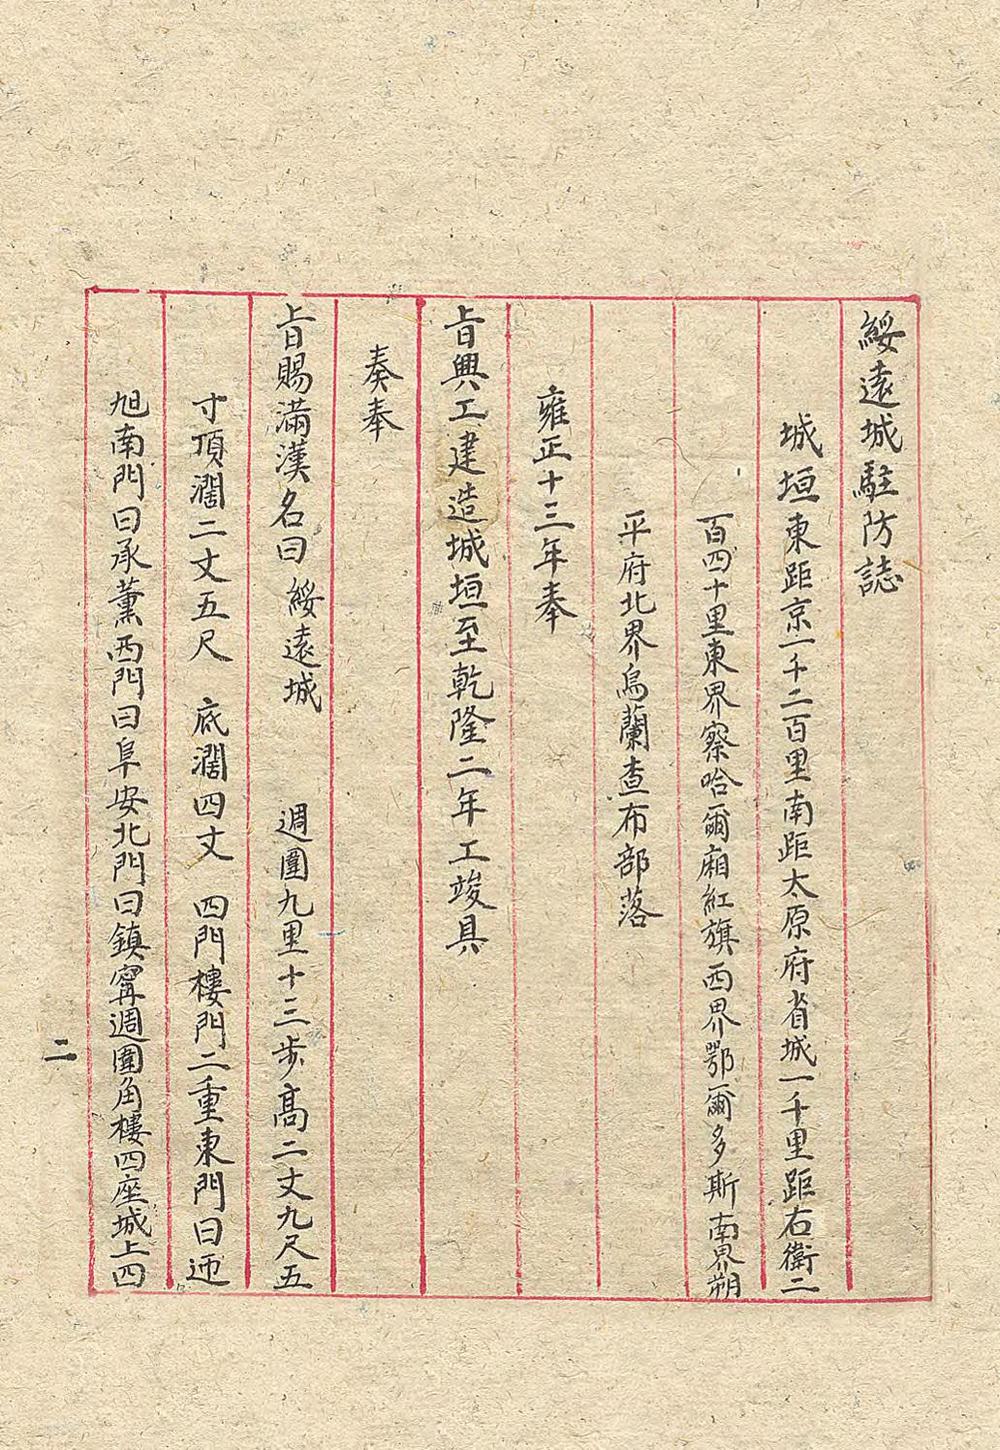 綏遠城駐防誌
城垣東距京一千二百里南距太原府省城一千里距右衛二
百四十里東界察哈爾廂紅旗西界鄂爾多斯南界朔
平府北界烏蘭查布部落
雍正十三年奉
旨興工建造城垣至乾隆二年工竣具
奏奉
旨賜滿漢名曰 綏遠城 週圍九里十三步高二丈九尺五
寸頂濶二丈五尺 底濶四丈 四門樓門二重東門曰迎
旭南門曰承薰西門曰阜安北門曰鎮寧週圍角樓四座城上四
二